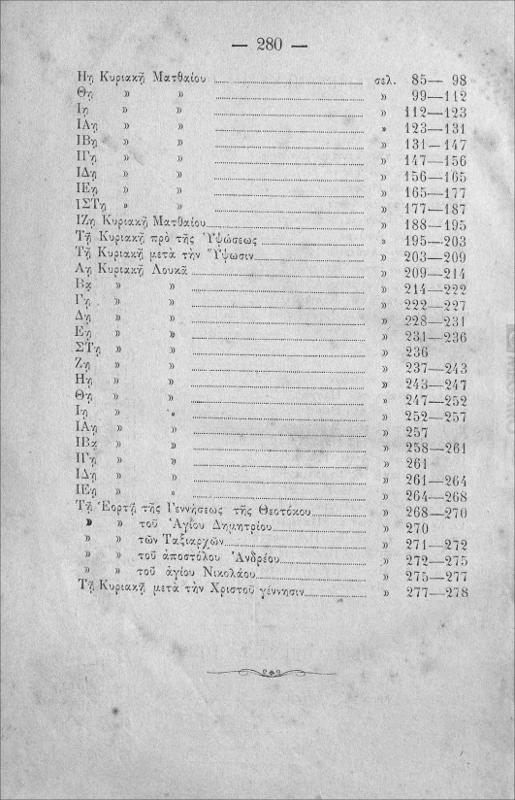 — 280 —
Ηη Κυριακῇ Ματθαίου σελ. 85— 98
Θη » » » 99—112
Ιη » » » 112—123
ΙΑη » » » 123—131
ΙΒη » » » 131-147
ΙΓη » » » 147—156
ΙΔη » » » 156—165
ΙΕη » » » 165—177
ΙΣΤη » » » 177—187
ΙΖη Κυριακῇ Ματθαίου » 188—195
Τῇ Κυριακῇ πρὸ τῆς Ὑψώσεως » 195—203
Τῇ Κυριακῇ μετὰ τὴν Ὕψωσιν » 203—209
Αη Κυριακῇ Λουκᾶ » 209—214
Βᾳ » » » 214—222
Γη » » » 222—227
Δη » » » 228—231
Εη » » » 231—236
ΣΤη » » » 236
Ζη » » » 237—243
Ηη » » » 243—247
Θη » » » 247—252
Ιη » » » 252—257
ΙΑη » » » 257
ΙΒᾳ » » » 258—261
ΙΓη » » » 261
ΙΔη » » » 261—264
ΙΕη » » » 264—268
Τῇ Ἑορτῇ τῆς Γεννήσεως τῆς Θεοτόκου » 268—270
» » τοῦ Ἁγίου Δημητρίου » 270
» » τῶν Ταξιαρχῶν » 271—272
» » τοῦ ἀποστόλου Ἀνδρέου » 272—275
» » τοῦ ἁγίου Νικολάου » 275—277
Τῇ Κυριακῇ μετὰ τὴν Χριστοῦ γέννησιν » 277—278